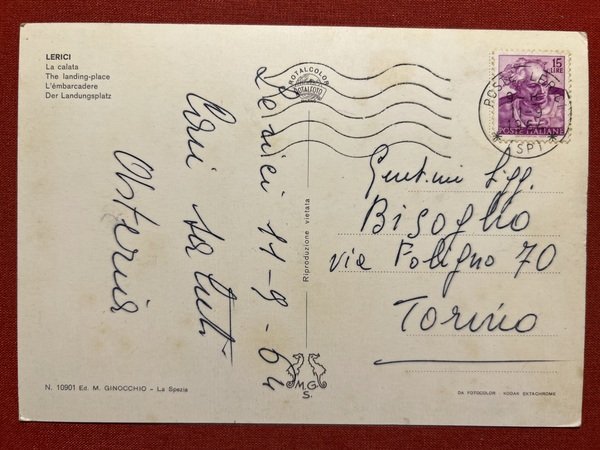 LERICI
La calata
The landing-place
L'émbarcadere
Der Landungsplatz
ROTALCOLOR
ROTALFOTO
15
LIRE
POSTE ITALIANE
Lerici 11-9-64
Cari saluti
Riproduzione vietata
Gent.mi Sigg.
Bisoglio
via Foligno 70
Torino
M.G.
S.
N. 10901 Ed. M. GINOCCHIO – La Spezia
DA FOTOCOLOR - KODAK EKTACHROME